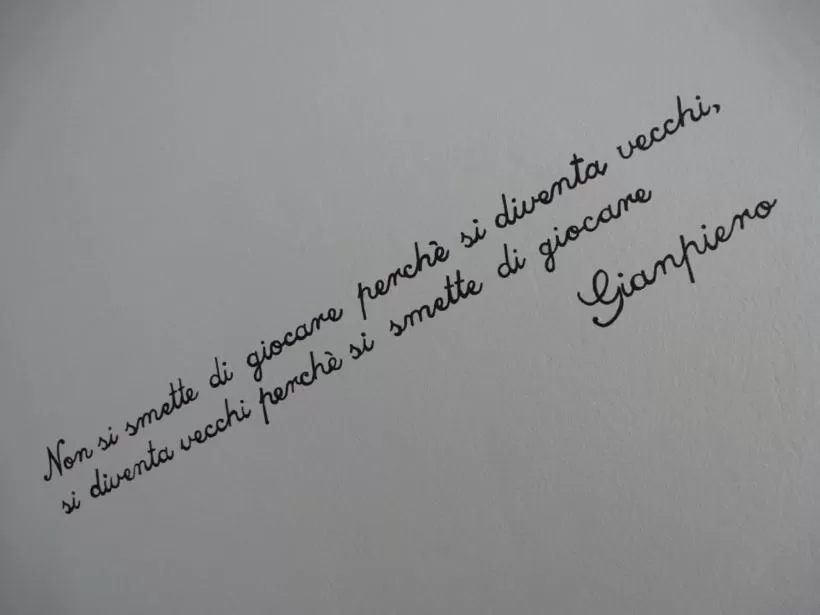 Non si smette di giocare perchè si diventa vecchi,
si diventa vecchi perchè si smette di giocare
Gianpiero